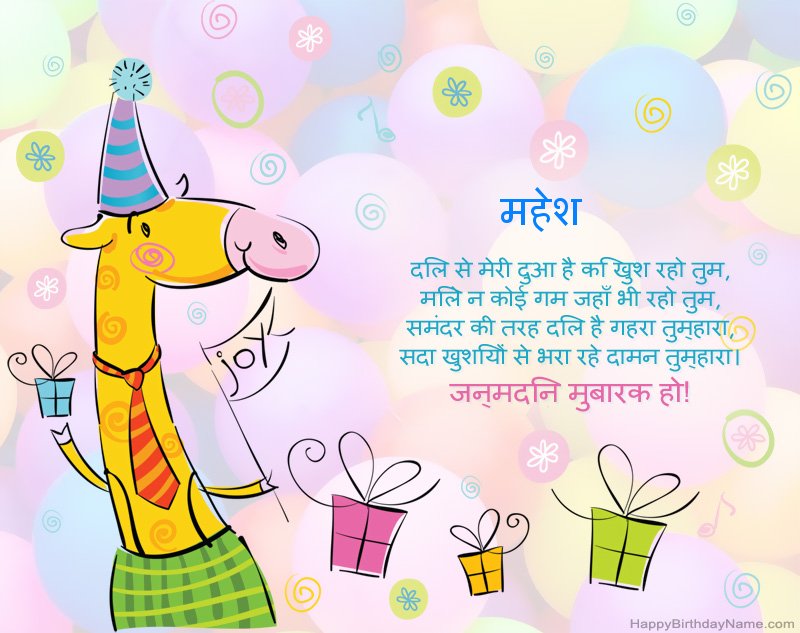 महेश
दलि से मेरी दुआ है क िखुश रहो तुम,
मलिे न कोई गम जहाँ भी रहो तुम,
समंदर की तरह दलि है गहरा तुम्हारा,
सदा खुशयिों से भरा रहे दामन तुम्हारा।
जन्मदनि मुबारक हो!
joy
HappyBirthdayName.com